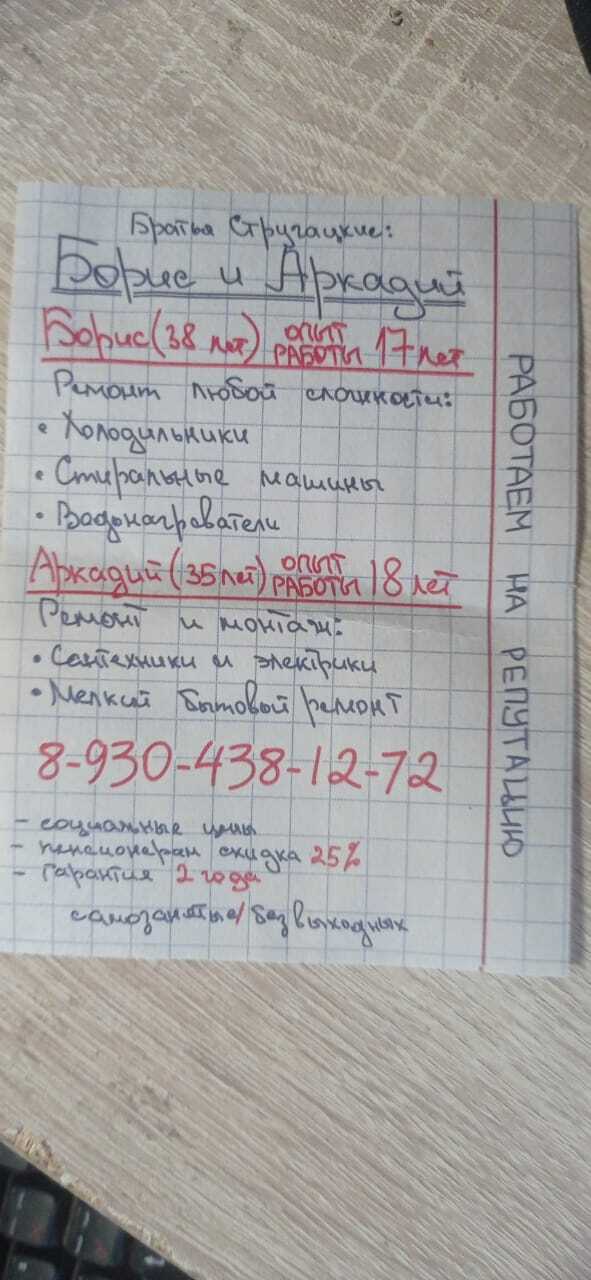 Братья Стругацкие:
Борис и Аркадий
Борис (38 лет) ОПЫТ РАБОТЫ 17 лет
Ремонт любой сложности:
• Холодильники
• Стиральные машины
• Водонагреватели
Аркадий (35 лет) ОПЫТ РАБОТЫ 18 лет
Ремонт и монтаж:
• Сантехники и электрики
• Мелкий бытовой ремонт
8-930-438-12-72
- социальные цены
- пенсионерам скидка 25%
- Гарантия 2 года
самозанятые/без выходных
РАБОТАЕМ НА РЕПУТАЦИЮ